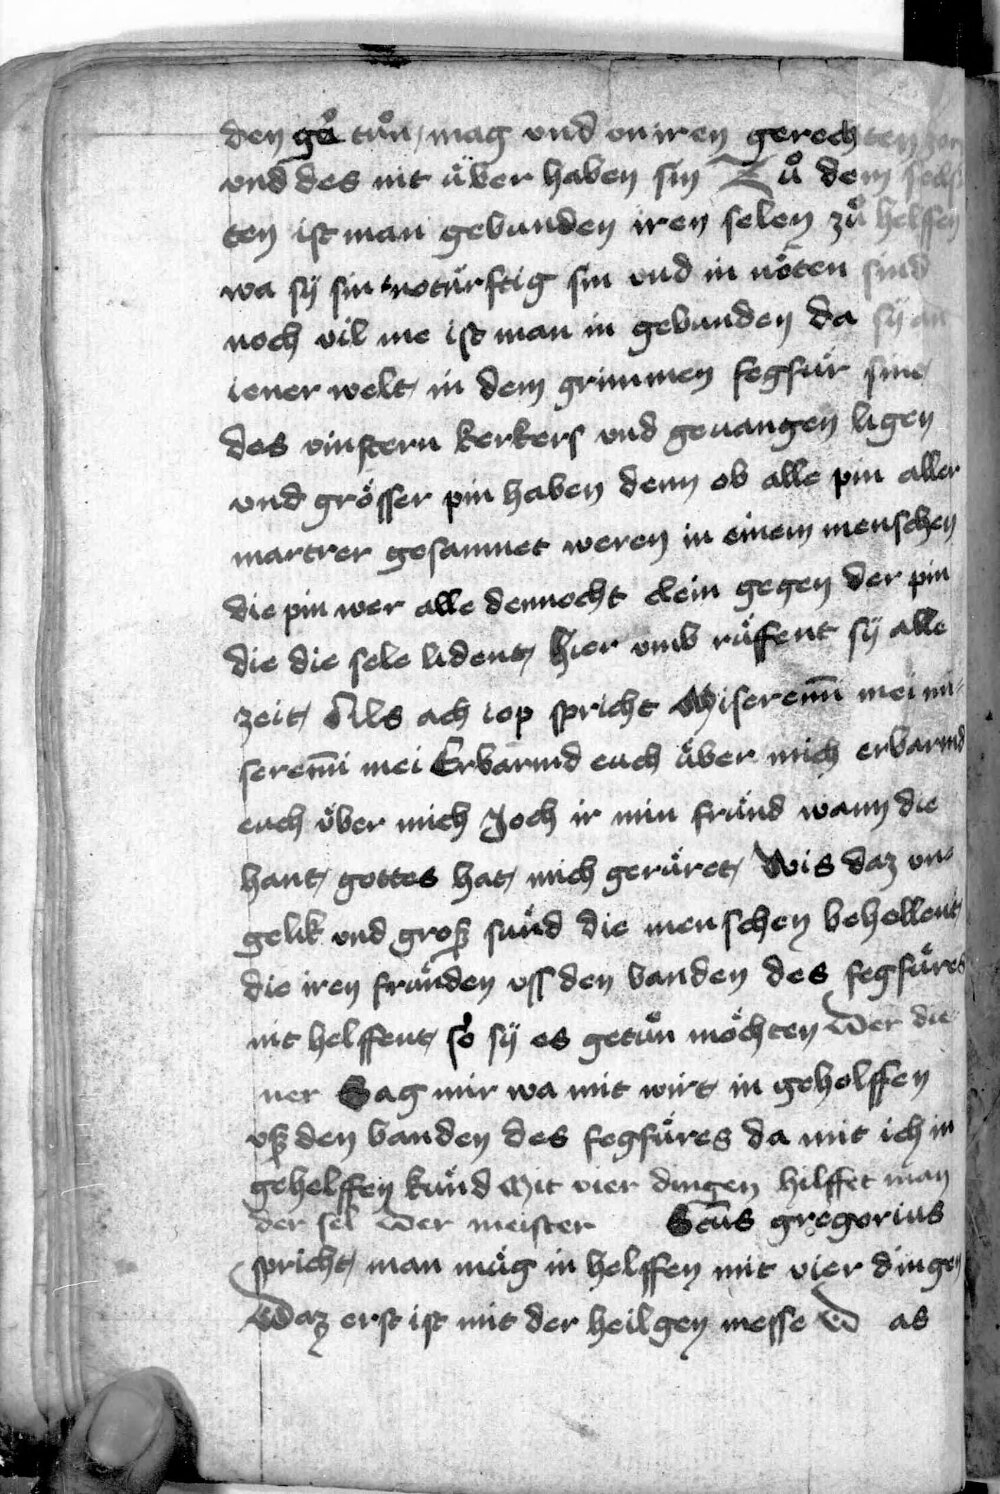 den gůt tůn mag vnd vn iren gerechten zorn
vnd des nit ú̈ber haben sin Zů dem sechs
ten ist man gebunden iren selen zů helffen
wa sÿ sin notúrftig sin vnd in nöten sind
noch vil me ist man in gebunden da sÿ an
iener welt in dem grimmen fegfúr sind
des vinstern kerkers vnd geuangen ligen
vnd grösser pin haben denn ob alle pin aller
martrer gesamnet weren in einem menschen
die pin wer alle dennocht clein gegen der pin
die die sele lident hier vmb růffent sÿ alle
zeit Als ach iop spricht Miseremī mei mi
seremī mei Erbarmd euch úber mich erbarmd
euch úber mich Joch ir min frúnd wann die
hant gottes hat mich gerúret Wis daz vn
gelik vnd groß súnd die menschen behellent
die iren frúnden vss den banden des fegfúres
nit helffent so sÿ es getůn möchten Der die
ner Sag mir wa mit wirt in geholffen
vß den banden des fegfúres da mit ich in
gehelffen kúnd Mit vier dingen hilffet man
der sel Der meister Sctūs gregorius
spricht man múg in helffen mit vier dingen
Daz erst ist mit der heilgen messe D as